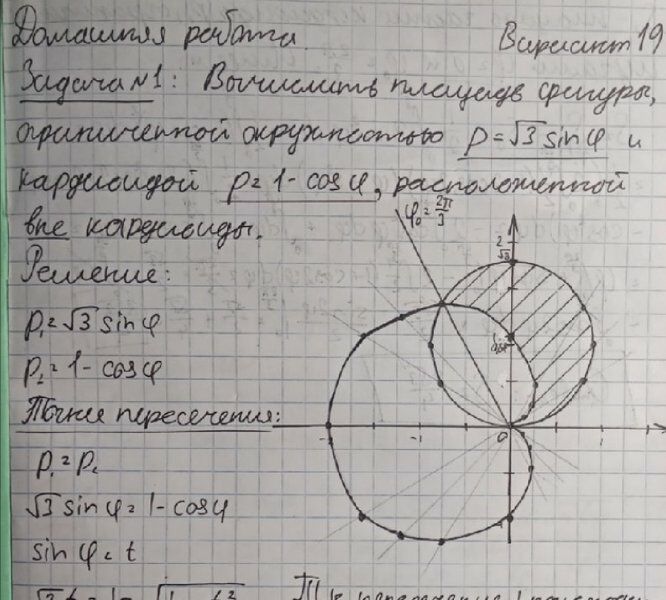 Домашняя работа. Вариант 19
Задача №1: Вычислить площадь фигуры,
ограниченной окружностью ρ=√3 sinφ и
кардиоидой ρ=1-cosφ, расположенной
вне кардиоиды.
φ₀=2π/3
Решение:
2
√3
ρ₁=√3 sinφ
ρ₂=1-cosφ
Точки пересечения:
-1 0 1
ρ₁=ρ₂
√3 sinφ=1-cosφ
sinφ=t